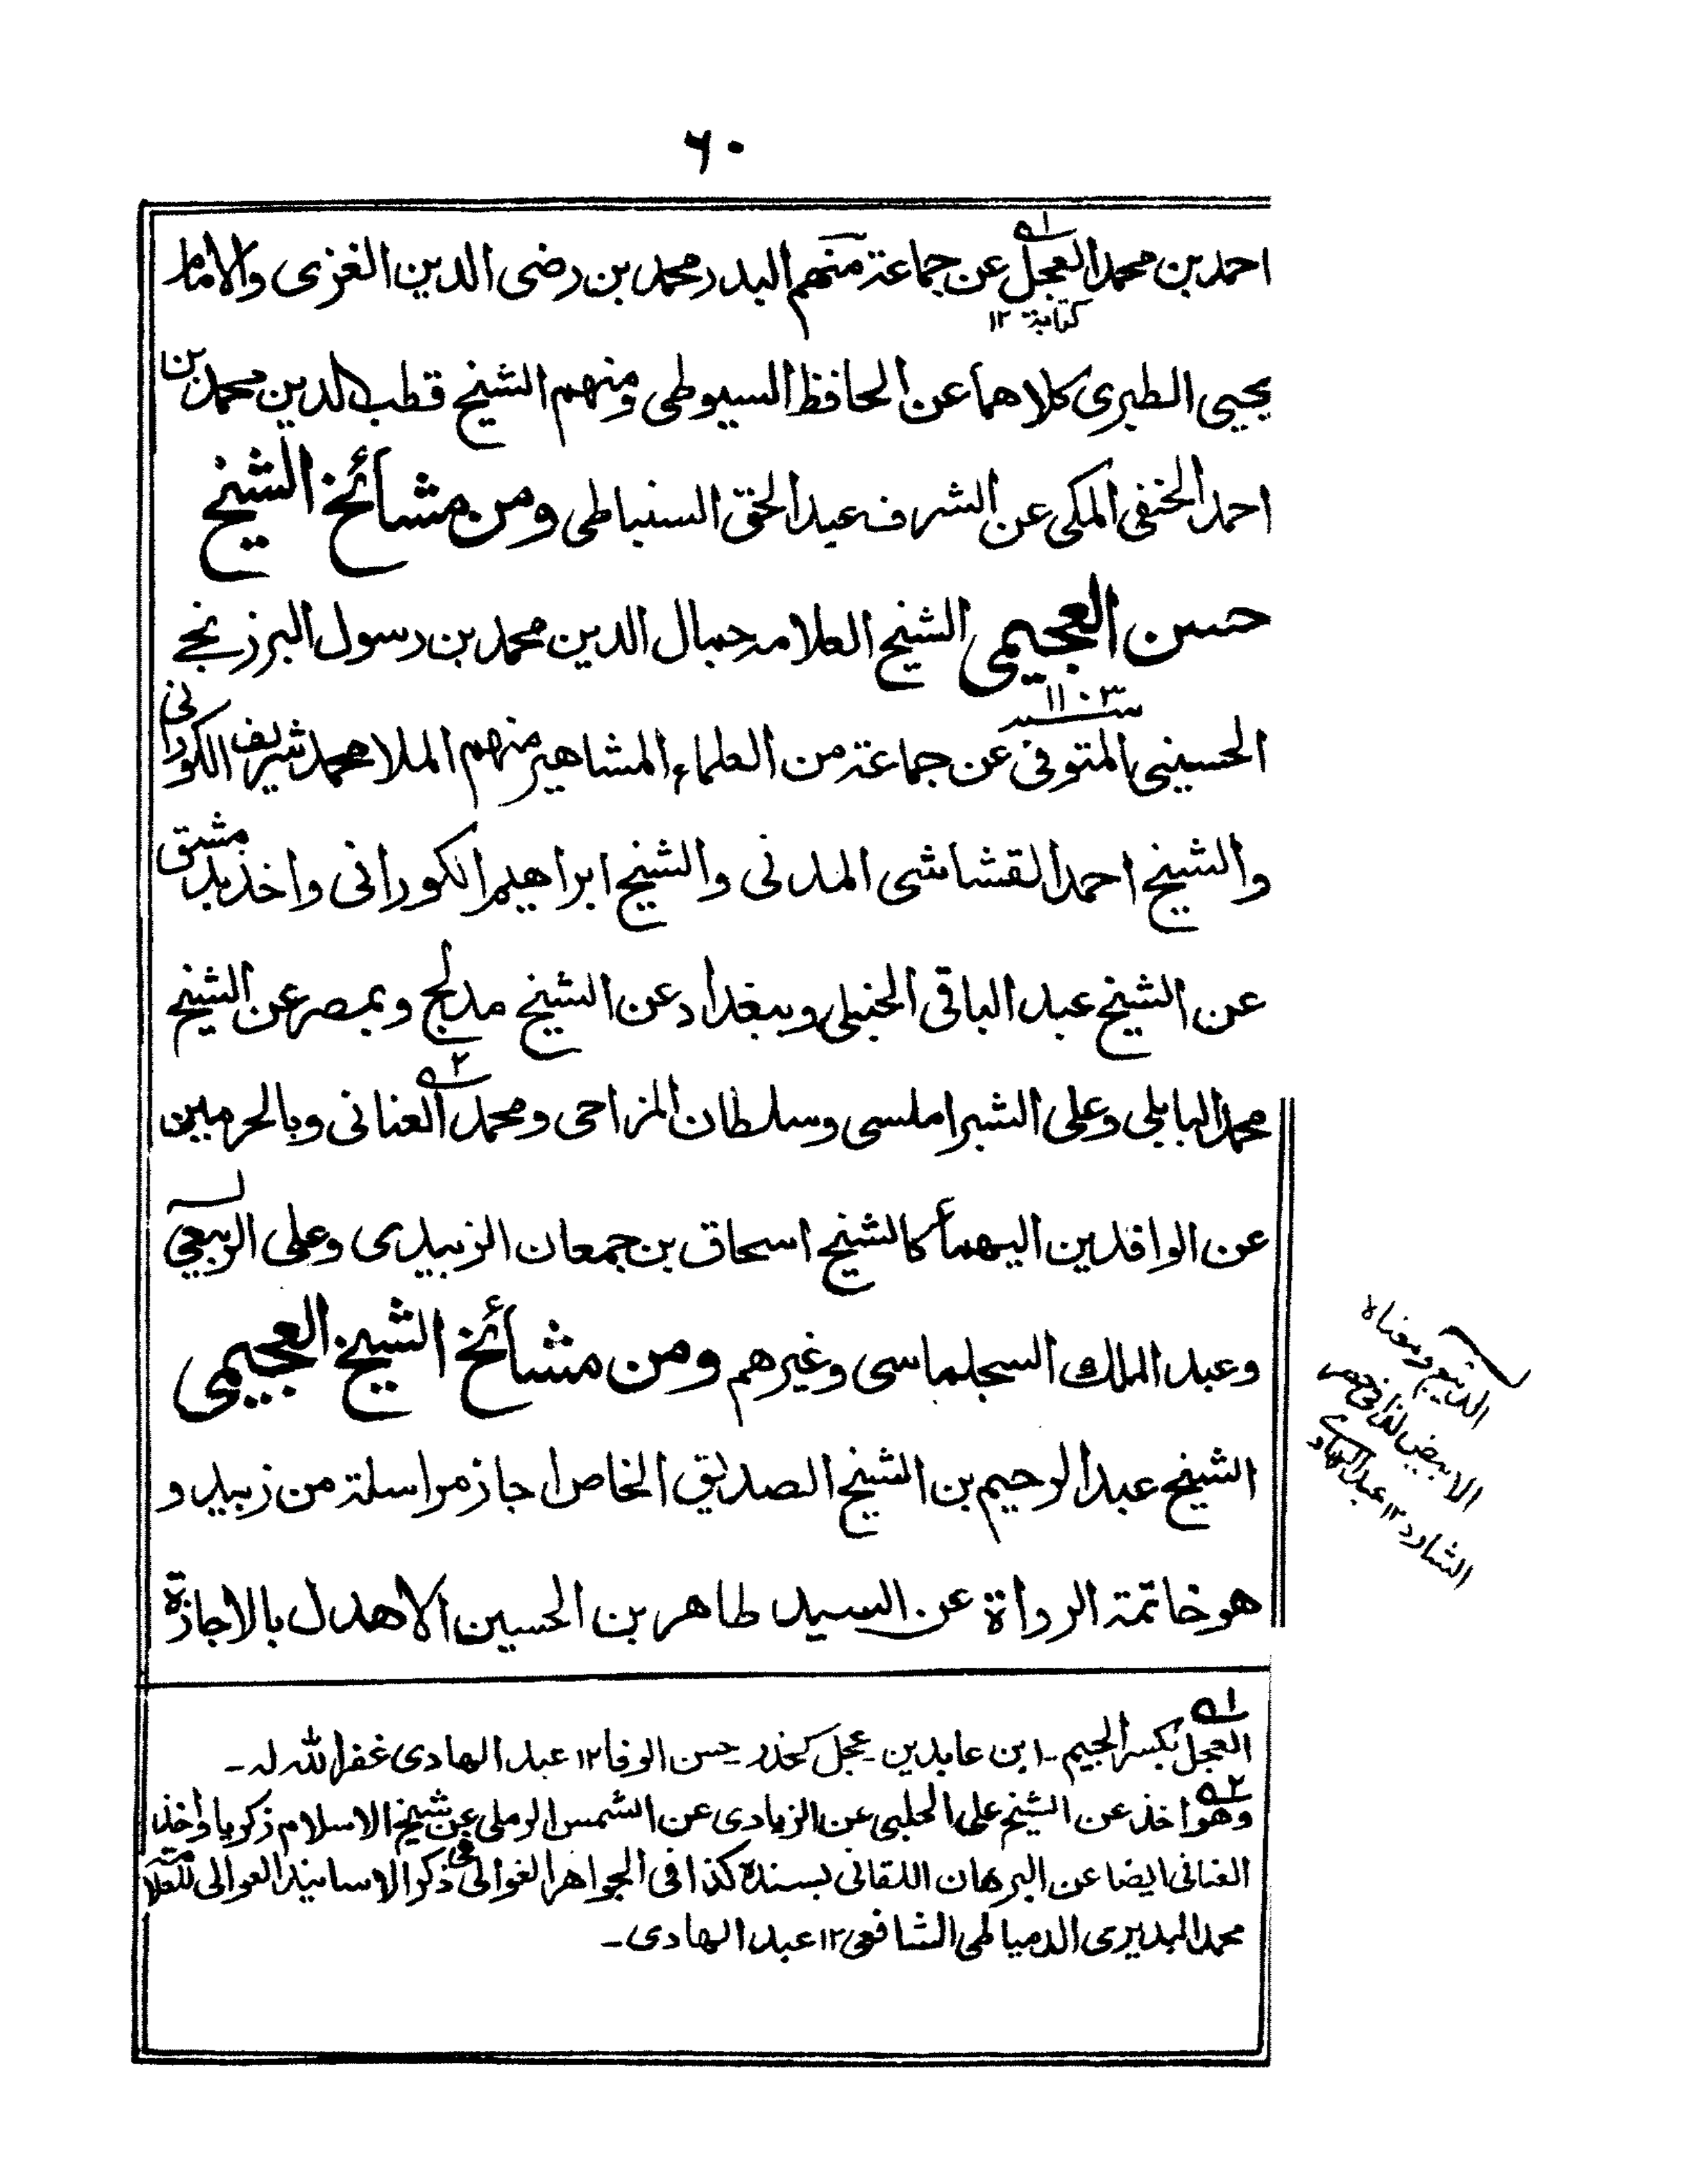 ٦٠
احمد بن محمد العجل عن جماعة منهم البدر محمد بن رضى الدين الغزى والامام
كتابة ١٢
يحيى الطبرى كلاهما عن الحافظ السيوطى ومنهم الشيخ قطب الدين محمد بن
احمد الحنفى المكى عن الشرف عبد الحق السنباطى ومن مشائخ الشيخ
حسن العجيمى الشيخ العلامه جمال الدين محمد بن رسول البرزنجے
الحسينى المتوفى سنة ١١٠٣ عن جماعة من العلماء المشاهير منهم الملا محمد شريف الكورانى
والشيخ احمد القشاشى المدنى والشيخ ابراهيم الكورانى واخذ بدمشق
عن الشيخ عبد الباقى الحنبلى وببغداد عن الشيخ مدلج وبمصر عن الشيخ
محمد البابلى وعلى الشبراملسى وسلطان المزاحى ومحمد العنانى وبالحرمين
عن الوافدين اليهما كالشيخ اسحاق بن جمعان الزبيدى وعلى الربيعے
وعبد الملك السجلماسى وغيرهم ومن مشائخ الشيخ العجيمى
الشيخ عبد الرحيم بن الشيخ الصديق الخاص اجاز مراسلة من زبيد و
هو خاتمة الرواة عن السيد طاهر بن الحسين الاهدل بالاجازة
الديبع ومعناه
الابيض لذا فى حصر
الشارد ١٢ عبد الهادے
١ے العجل بكسر الجيم ـ ابن عابدين ـ عجل كحذر ـ حسن الوفا ١٢ عبد الهادى غفر الله له ـ
٢ے وهو اخذ عن الشيخ على الحلبى عن الزيادى عن الشمس الرملى عن شيخ الاسلام زكريا واخذ
العنانى ايضا عن البرهان اللقانى بسنده كذا فى الجواهر الغوالى فى ذكر الاسانيد العوالى للعلامة
محمد البديرى الدمياطى الشافعى ١٢ عبد الهادى ـ